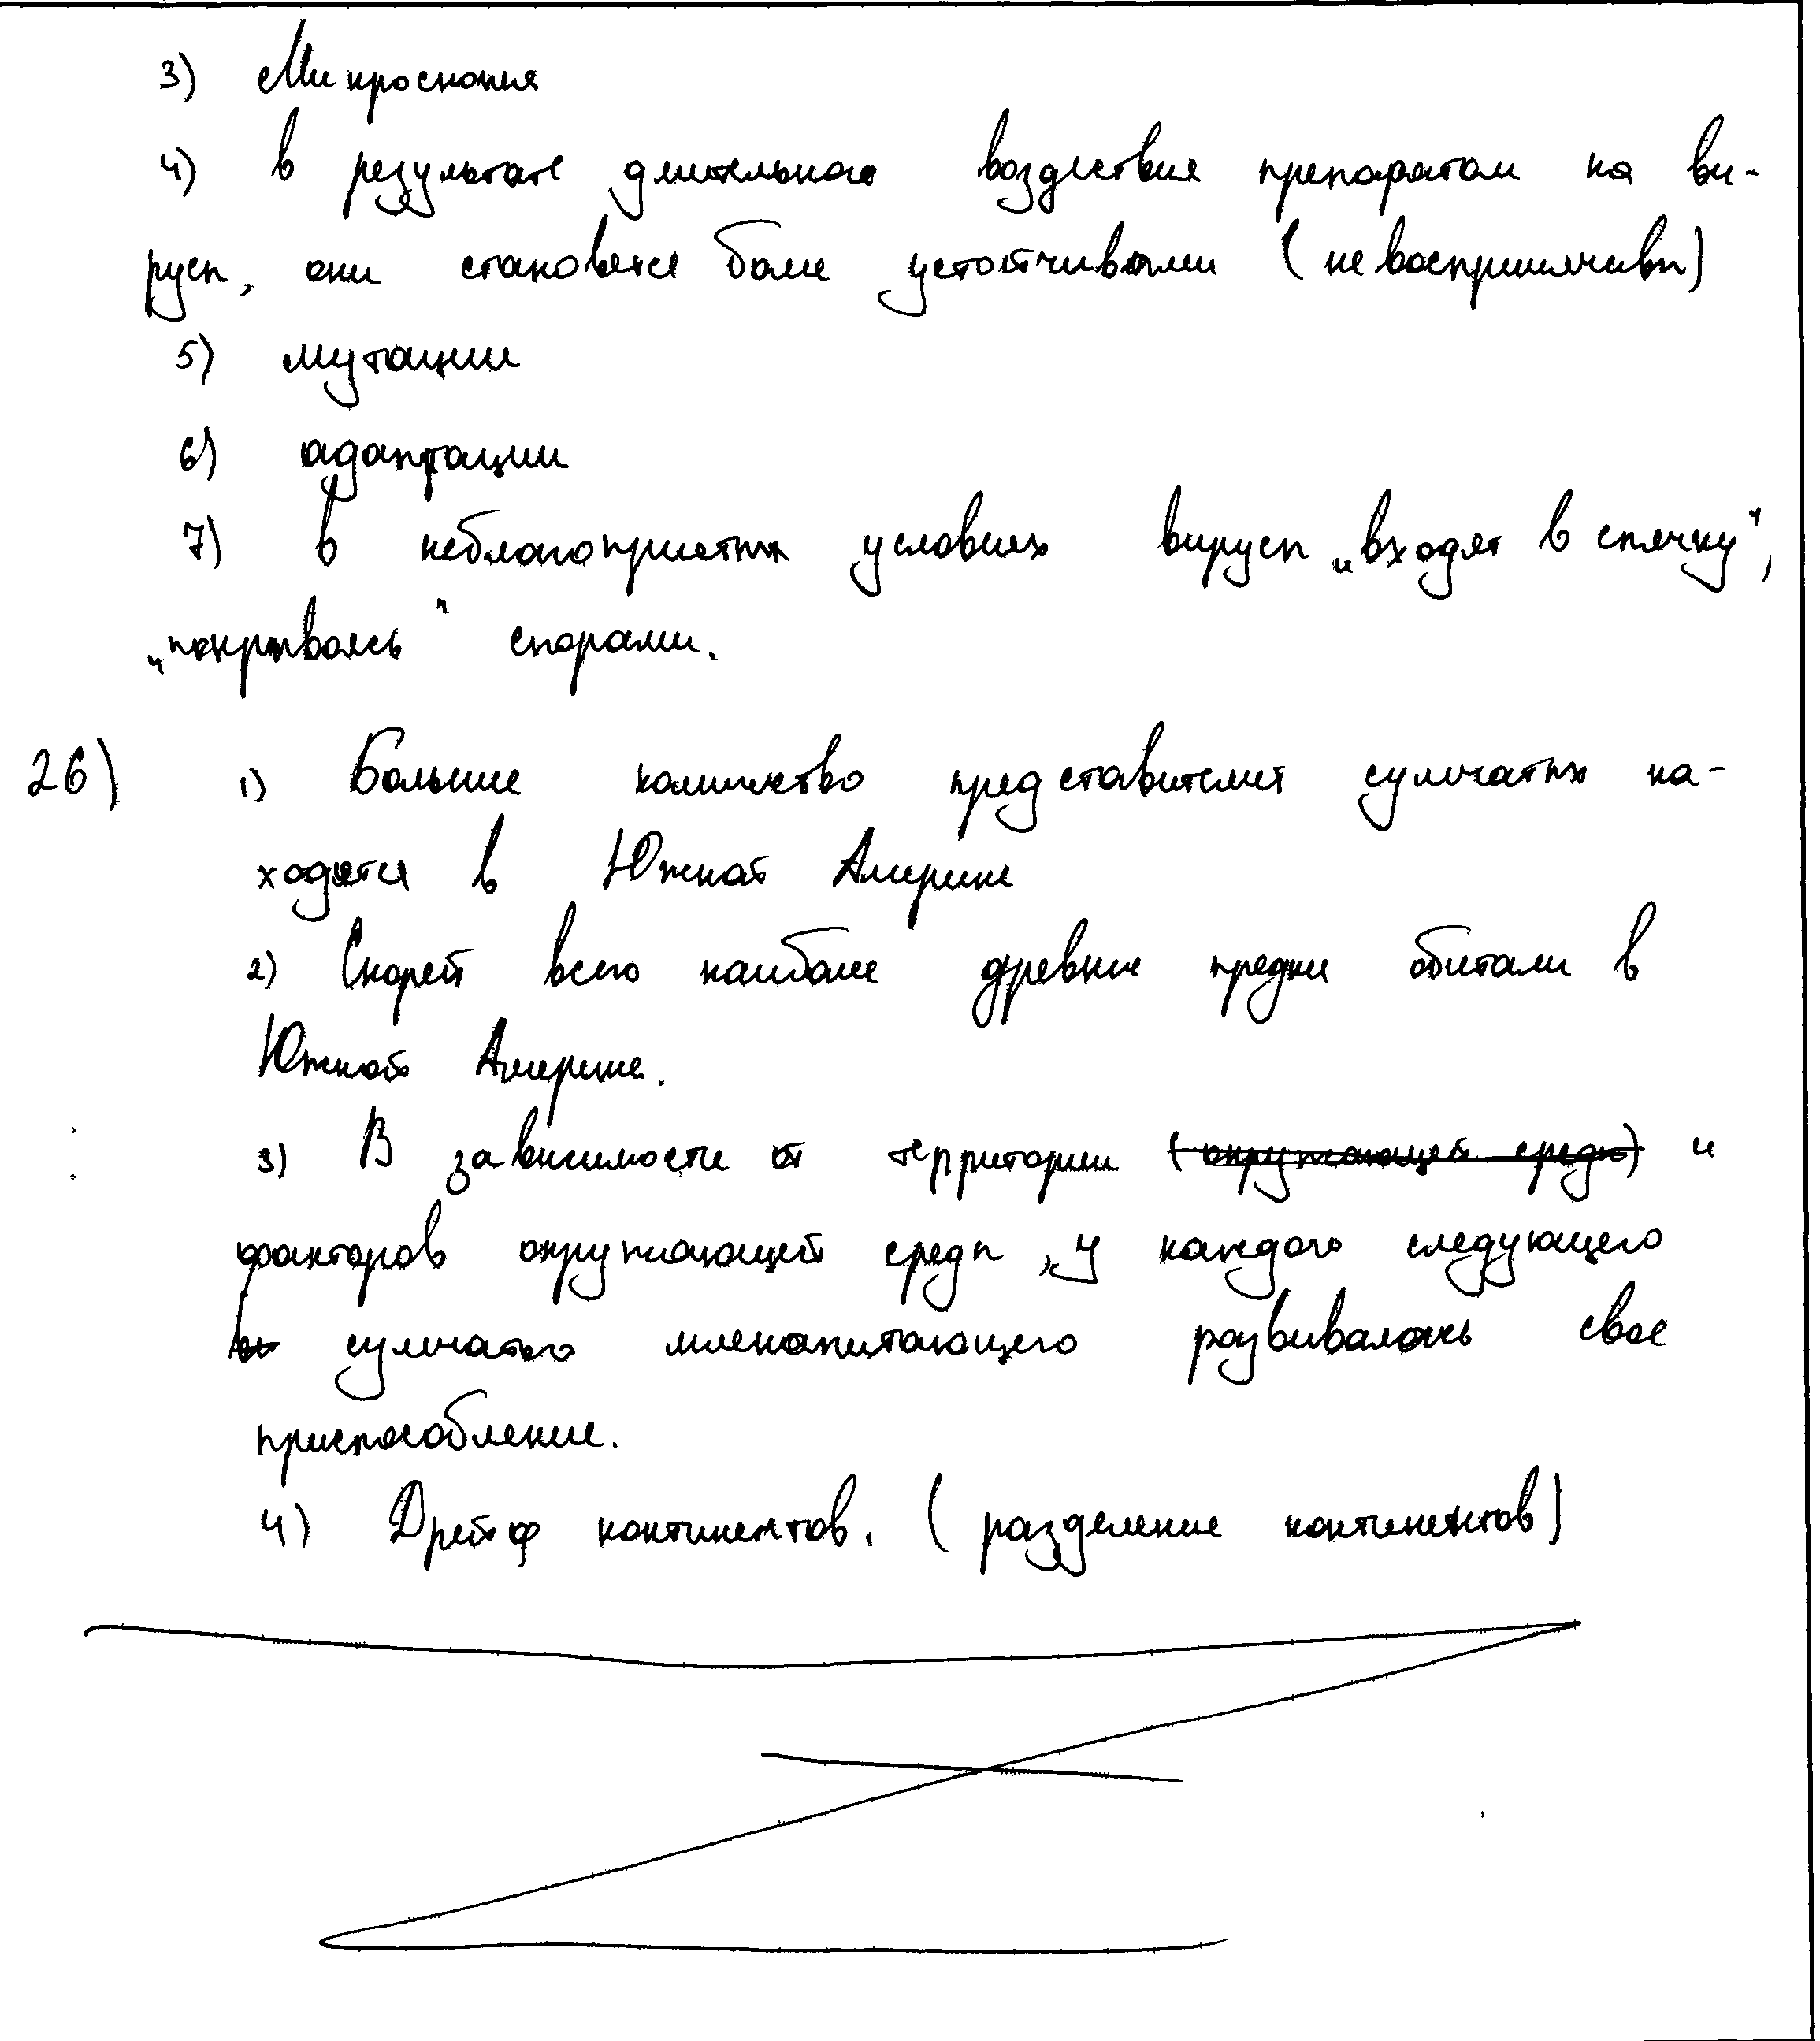 3) Микроскопия
4) в результате длительного воздествия препаратом на ви-
русы, они становятся более устойчивыми (не восприимчивы)
5) мутации
6) адаптации
7) в неблагоприятных условиях вирусы „входят в спячку",
„покрываясь" спорами.
26) 1) Больше количество представителей сумчатых на-
ходятся в Южной Америке
2) Скорей всего наиболее древние предки обитали в
Южной Америке.
3) В зависимости от территории (окружающей среды) и
факторов окружающей среды, у каждого следующего
сумчатого млекопитающего развивалось свое
приспособление.
4) Дрейф континентов. (разделение континентов)